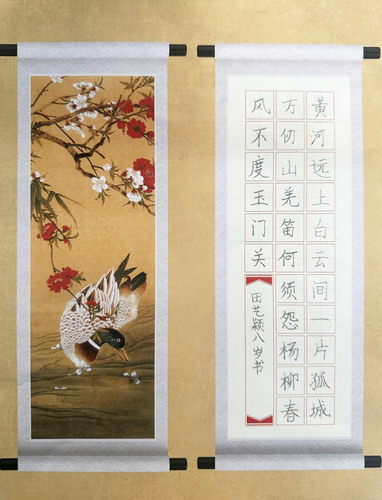 黄河远上白云间一片孤城
万仞山羌笛何须怨杨柳春
风不度玉门关
田艺颖八岁书